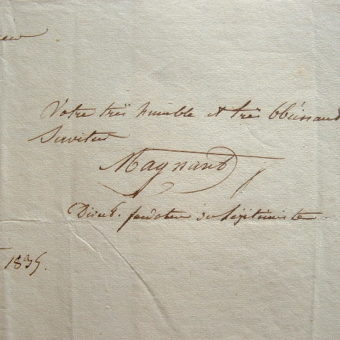 Votre très humble et très obéissant
Serviteur
Magnant
Direct. fondateur du légitimiste
1835.